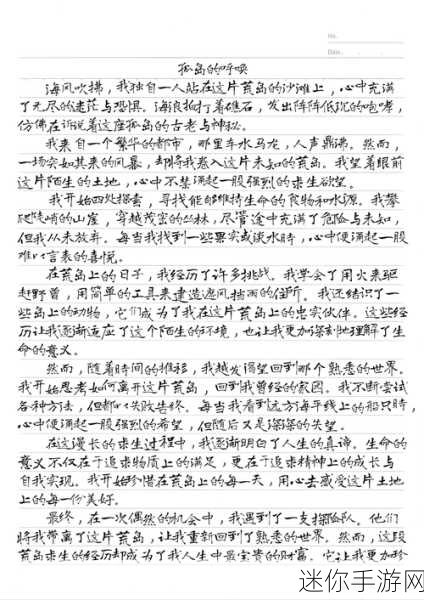 No.
Date
孤岛的呼唤
海风吹拂，我独自一人站在这片荒岛的沙滩上，心中充满
了无尽的迷茫与恐惧。海浪拍打着礁石，发出阵阵低沉的咆哮，
仿佛在诉说着这座孤岛的古老与神秘。
我来自一个繁华的都市，那里车水马龙，人声鼎沸。然而，
一场突如其来的风暴，却将我卷入这片未知的荒岛。我望着眼前
这片陌生的土地，心中不禁涌起一股强烈的求生欲望。
我开始四处探索，寻找能够维持生命的食物和水源。我攀
爬陡峭的山崖，穿越茂密的丛林，尽管途中充满了危险与未知，
但我从未放弃。每当我找到一些果实或淡水时，心中便涌起一股
难以言表的喜悦。
在荒岛上的日子，我经历了许多挑战。我学会了用火来驱
赶野兽，用简单的工具来建造遮风挡雨的住所。我还结识了一
些岛上的动物，它们成为了我在这片荒岛上的忠实伙伴。这些经
历让我逐渐适应了这个陌生的环境，也让我更加深刻地理解了生
命的意义。
然而，随着时间的推移，我越发渴望回到那个熟悉的世界。
我开始思考如何离开这片荒岛，回到我曾经的家园。我不断尝试
各种方法，但都以失败告终。每当我看到远方海平线上的船只时，
心中便涌起一股强烈的希望，但随后又是深深的失望。
在这漫长的求生过程中，我逐渐明白了人生的真谛。生命的
意义不仅在于追求物质上的满足，更在于追求精神上的成长与
自我实现。我开始珍惜在荒岛上的每一天，用心去感受这片土地
上的每一份美好。
最终，在一次偶然的机会中，我遇到了一支探险队。他们
将我带离了这片荒岛，让我重新回到了熟悉的世界。然而，这段
荒岛求生的经历却成为了我人生中最宝贵的财富。它让我更加珍
迷你手游网